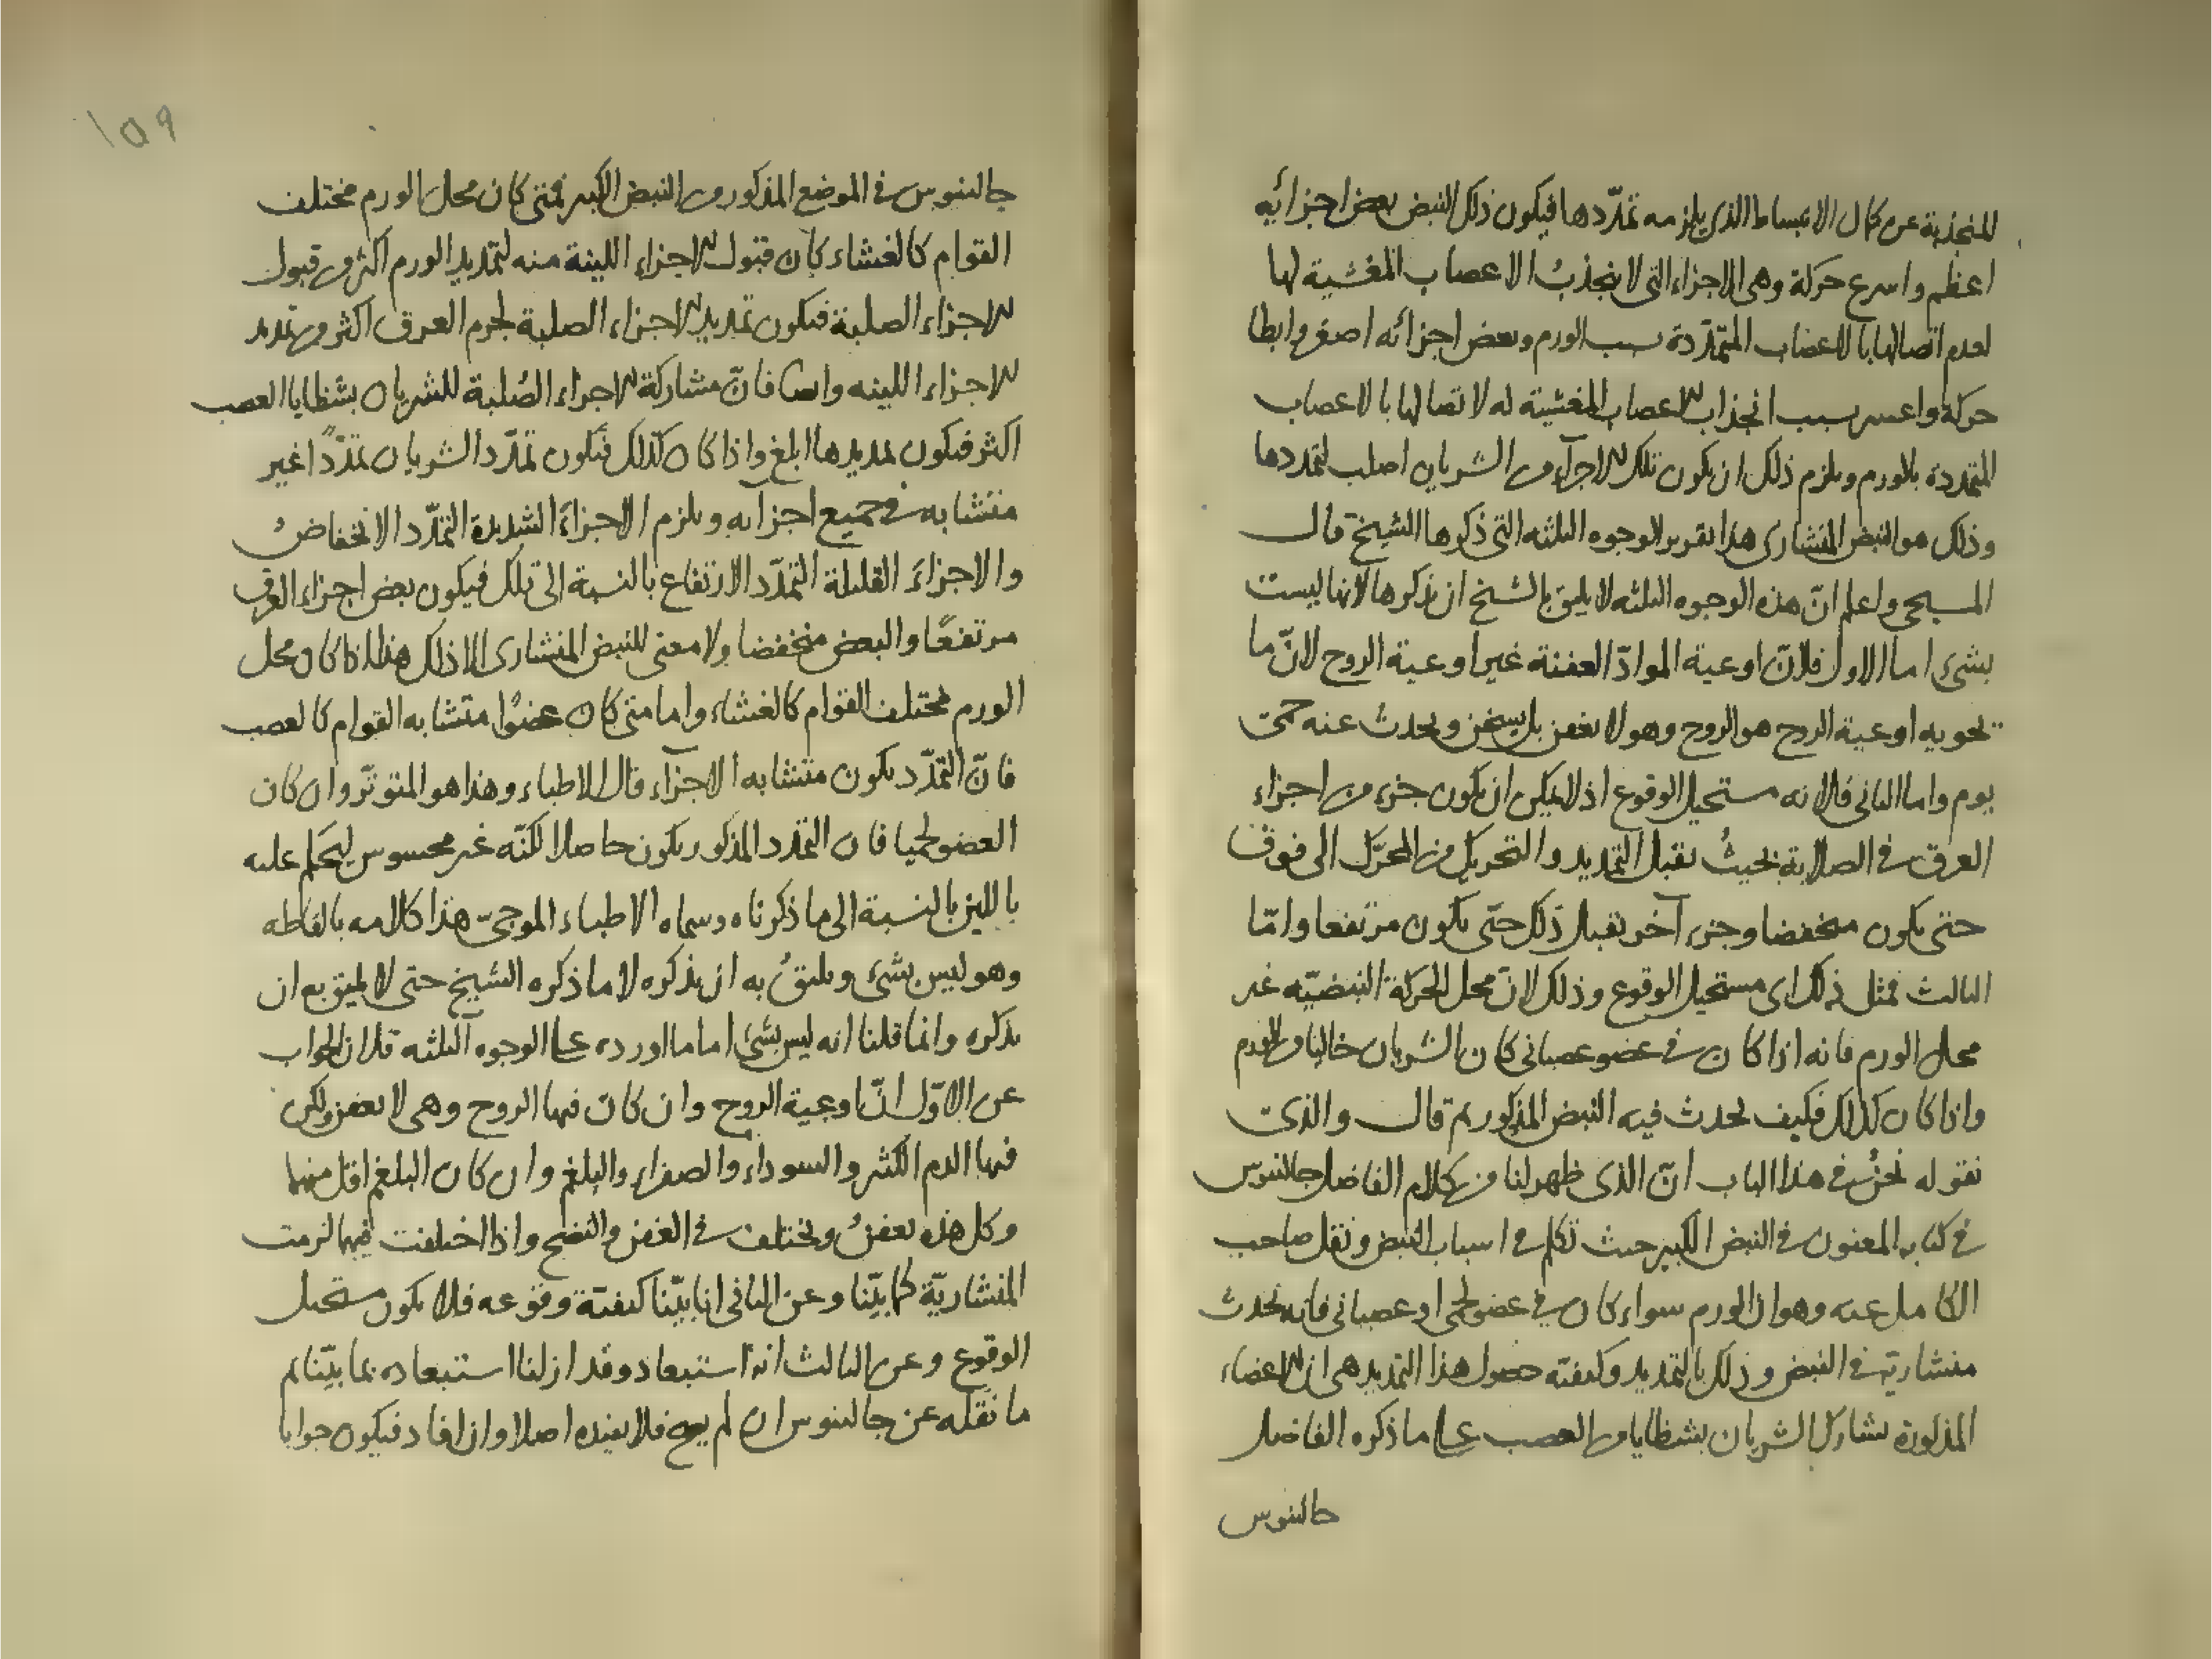 المنجذبة عن كمال الانبساط الذى يلزمه تمدّدها فيكون ذلك النبض بعض اجزائه
اعظم واسرع حركة وهى الاجزاء التى لا يجذب الاعصاب المغشية لها
لعدم اتصالها بالاعصاب المتمدّدة بسبب الورم وبعض اجزائه اصغر وابطا
حركة واعسر بسبب انجذاب الاعصاب المغشية له لاتصالها بالاعصاب
المتمددة بالورم ويلزم ذلك ان يكون تلك الاجزآء من الشريان اصلب لتمددها
وذلك هو النبض المنشارى هذا تقرير الوجوه الثلثه التى ذكرها الشيخ قال
المسيحى واعلم انّ هذه الوجوه الثلثه لا يليق بالشيخ ان يذكرها لانها ليست
بشئ اما الاول فلانّ اوعية الموادّ العفنة غير اوعية الروح لانّ ما
تحويه اوعية الروح هو الروح وهو لا يعفن بل يسخن ويحدث عنه حمى
يوم واما الثانى فلانه مستحيل الوقوع اذ لا يمكن ان يكون جزء من اجزاء
العرق فى الصلابة بحيث يقبل التمديد والتحريك من المحرّك الى فوق
حتى يكون منخفضا وجزء آخر يقبل ذلك حتّى يكون مرتفعا وامّا
الثالث فمثل ذلك اى مستحيل الوقوع وذلك لانّ محل الحركة النبضيّه غير
محل الورم فانه اذا كان فى عضو عصبانى كان الشريان خاليا من الورم
واذا كان كذلك فكيف يحدث فيه النبض المذكور ثم قال والذى
نقوله نحن فى هذا الباب انّ الذى ظهر لنا من كلام الفاضل جالينوس
فى كتابه المعنون فى النبض الكبير حيث تكلم فى اسباب النبض ونقل صاحب
الكامل عنه وهو ان الورم سواء كان فى عضو لحمى او عصبانى فانه يحدث
منشارية فى النبض وذلك بالتمديد وكيفية حصول هذا التمديد هى ان الاعضاء
المذكورة تشارك الشريان بشظايا من العصب على ما ذكره الفاضل
جالينوس
١٥٩
جالينوس فى الموضع المذكور من النبض الكبير فمتى كان محل الورم مختلف
القوام كالغشاء كان قبول الاجزاء اللينة منه لتمديد الورم اكثر من قبول
الاجزاء الصلبة فيكون تمديد الاجزاء الصلبة لجرم العرق اكثر من تمديد
الاجزاء اللينه وايضا فانّ مشاركة الاجزاء الصُلبة للشريان بشظايا العصب
اكثر فيكون تمديدها ابلغ واذا كان كذلك فيكون تمدّد الشريان تمدّدًا غير
متشابه فى جميع اجزايه ويلزم الاجزاءَ الشديدة التمدّد الانخفاضُ
والاجزاءَ القليلة التمدّد الارتفاع بالنسبة الى تلك فيكون بعض اجزاء العرق
مرتفعًا والبعض منخفضا ولا معنى للنبض المنشارى الا ذلك هذا اذا كان محل
الورم مختلف القوام كالغشاء واما متى كان عضوًا متشابه القوام كالعصب
فانّ التمدّد يكون متشابه الاجزآء قال الاطباء وهذا هو المتوتّر وان كان
العضو لحميا فان التمدد المذكور يكون حاصلا لكنّه غير محسوس ليحكم عليه
باللين بالنسبة الى ما ذكرناه وسماه الاطباء الموجىّ هذا كلامه بالفاظه
وهو ليس بشئ ويليقُ به ان يذكره لا ما ذكره الشيخ حتى لا يليق به ان
يذكره وانما قلنا انه ليس بشئ اما ما اورده على الوجوه الثلثه فلان الجواب
عن الاوّل انّ اوعية الروح وان كان فيها الروح وهى لا تعفن ولكن
فيها الدم الكثير والسوداء والصفراء والبلغم وان كان البلغم اقل منهما
وكل هذه تعفنُ وتختلف فى العفن والنضج واذا اختلفت فيها لزمت
المنشاريّة كما بيّنا وعن الثانى انا بيّنا كيفيّة وقوعه فلا يكون مستحيل
الوقوع وعن الثالث انه استبعاد وقد ازلنا استبعاده بما بيّنا ثم
ما نقله عن جالينوس ان لم يصح فلا يفيده اصلا وان افاد فيكون جوابا